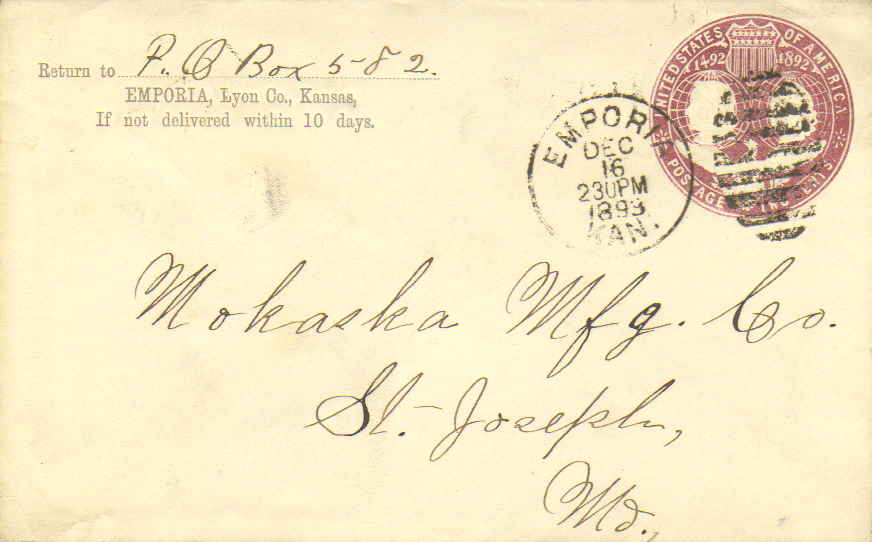 Return to P. O Box 582.
EMPORIA, Lyon Co., Kansas,
If not delivered within 10 days.
UNITED STATES OF AMERICA
1492 1892
POSTAGE TWO CENTS
EMPORIA
DEC
16
230PM
1893
KAN.
Mokaska Mfg. Co.
St. Joseph,
Mo.,